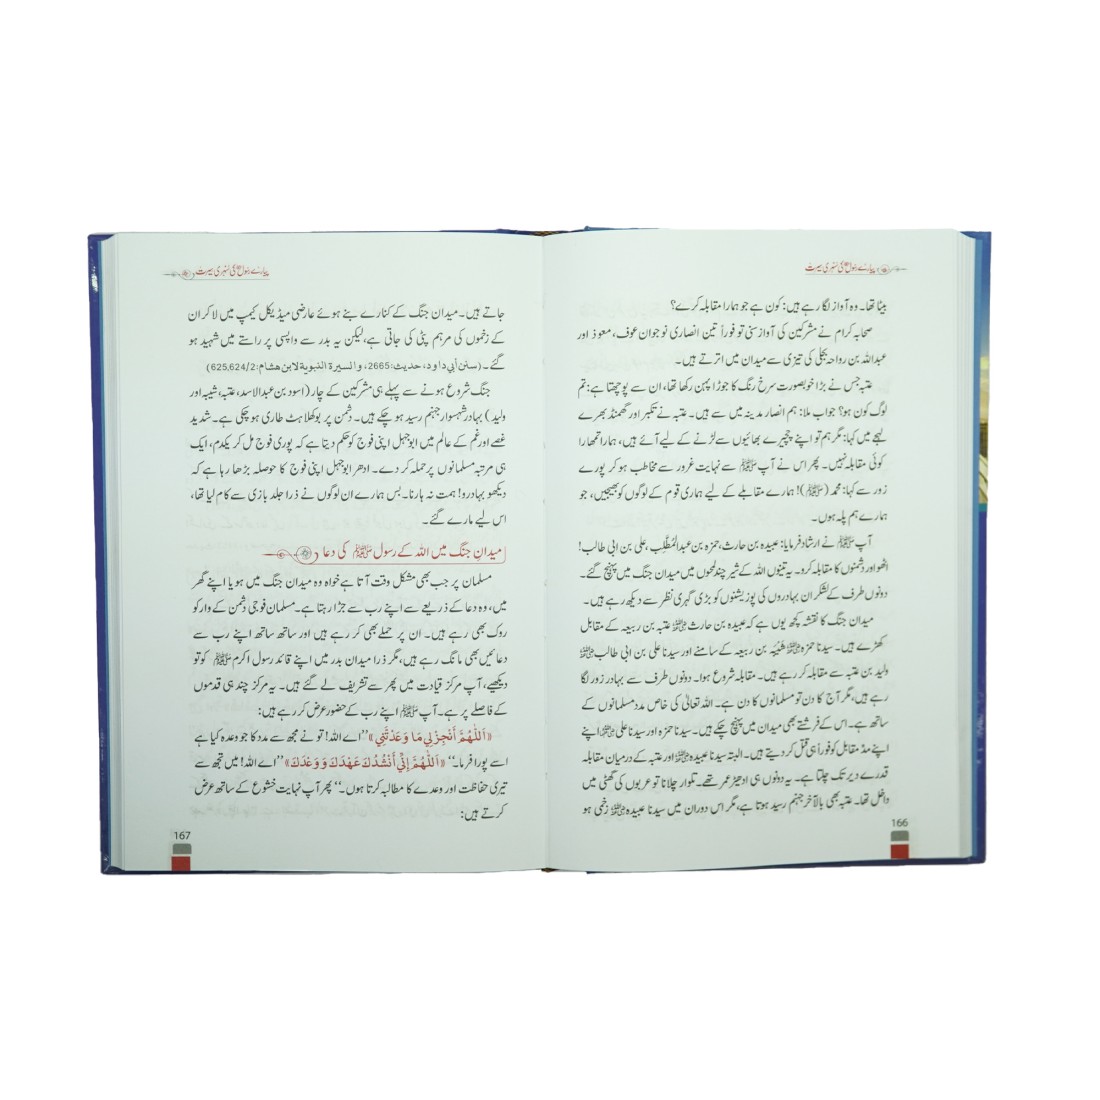 پیارے رسول ﷺ کی سنہری سیرت
بیٹا تھا۔ وہ آواز لگا رہے ہیں: کون ہے جو ہمارا مقابلہ کرے؟
صحابہ کرام نے مشرکین کی آواز سنی تو فوراً تین انصاری نوجوان عوف، معوذ اور
عبداللہ بن رواحہ بجلی کی تیزی سے میدان میں اترتے ہیں۔
عتبہ جس نے بڑا خوبصورت سرخ رنگ کا جوڑا پہن رکھا تھا، ان سے پوچھتا ہے: تم
لوگ کون ہو؟ جواب ملا: ہم انصار مدینہ میں سے ہیں۔ عتبہ نے تکبر اور گھمنڈ بھرے
لہجے میں کہا: مگر ہم تو اپنے چچیرے بھائیوں سے لڑنے کے لیے آئے ہیں، ہمارا تمھارا
کوئی مقابلہ نہیں۔ پھر اس نے آپ ﷺ سے نہایت غرور سے مخاطب ہو کر پورے
زور سے کہا: محمد (ﷺ)! ہمارے مقابلے کے لیے ہماری قوم کے لوگوں کو بھیجیں، جو
ہمارے ہم پلہ ہوں۔
آپ ﷺ نے ارشاد فرمایا: عبیدہ بن حارث، حمزہ بن عبدالمُطّلِب، علی بن ابی طالب!
اٹھو اور دشمنوں کا مقابلہ کرو۔ یہ تینوں اللہ کے شیر چند لمحوں میں میدان جنگ میں پہنچ گئے۔
دونوں طرف کے لشکر ان بہادروں کی پوزیشنوں کو بڑی گہری نظر سے دیکھ رہے ہیں۔
میدان جنگ کا نقشہ کچھ یوں ہے کہ عبیدہ بن حارث رضی اللہ عنہ عتبہ بن ربیعہ کے مقابل
کھڑے ہیں۔ سیدنا حمزہ رضی اللہ عنہ شَیْبَہ بن ربیعہ کے سامنے اور سیدنا علی بن ابی طالب رضی اللہ عنہ
ولید بن عتبہ سے مقابلہ کر رہے ہیں۔ مقابلہ شروع ہوا۔ دونوں طرف سے بہادر زور لگا
رہے ہیں، مگر آج کا دن تو مسلمانوں کا دن ہے۔ اللہ تعالیٰ کی خاص مدد مسلمانوں کے
ساتھ ہے۔ اس کے فرشتے بھی میدان میں پہنچ چکے ہیں۔ سیدنا حمزہ اور سیدنا علی رضی اللہ عنہما اپنے
اپنے مد مقابل کو فوراً ہی قتل کر دیتے ہیں۔ البتہ سیدنا عبیدہ رضی اللہ عنہ اور عتبہ کے درمیان مقابلہ
قدرے دیر تک چلتا ہے۔ یہ دونوں ہی ادھیڑ عمر تھے۔ تلوار چلانا تو عربوں کی گھٹی میں
داخل تھا۔ عتبہ بھی بالآخر جہنم رسید ہوتا ہے، مگر اس دوران میں سیدنا عبیدہ رضی اللہ عنہ زخمی ہو
166
پیارے رسول ﷺ کی سنہری سیرت
جاتے ہیں۔ میدان جنگ کے کنارے بنے ہوئے عارضی میڈیکل کیمپ میں لا کر ان
کے زخموں کی مرہم پٹی کی جاتی ہے، لیکن یہ بدر سے واپسی پر راستے میں شہید ہو
گئے۔ (سنن أبي داود، حدیث:2665، والسیرۃ النبویۃ لابن ھشام:625,624/2)
جنگ شروع ہونے سے پہلے ہی مشرکین کے چار (اسود بن عبدالاسد، عتبہ، شیبہ اور
ولید) بہادر شہسوار جہنم رسید ہو چکے ہیں۔ دشمن پر بوکھلاہٹ طاری ہو چکی ہے۔ شدید
غصے اور غم کے عالم میں ابوجہل اپنی فوج کو حکم دیتا ہے کہ پوری فوج مل کر یکدم، ایک
ہی مرتبہ مسلمانوں پر حملہ کر دے۔ ادھر ابوجہل اپنی فوج کا حوصلہ بڑھا رہا ہے کہ
دیکھو بہادرو! ہمت نہ ہارنا۔ بس ہمارے ان لوگوں نے ذرا جلد بازی سے کام لیا تھا،
اس لیے مارے گئے۔
میدانِ جنگ میں اللہ کے رسول ﷺ کی دعا
مسلمان پر جب بھی مشکل وقت آتا ہے خواہ وہ میدان جنگ میں ہو یا اپنے گھر
میں، وہ دعا کے ذریعے سے اپنے رب سے جڑا رہتا ہے۔ مسلمان فوجی دشمن کے وار کو
روک بھی رہے ہیں۔ ان پر حملے بھی کر رہے ہیں اور ساتھ ساتھ اپنے رب سے
دعائیں بھی مانگ رہے ہیں، مگر ذرا میدان بدر میں اپنے قائد رسول اکرم ﷺ کو تو
دیکھیے، آپ مرکز قیادت میں پھر سے تشریف لے گئے ہیں۔ یہ مرکز چند ہی قدموں
کے فاصلے پر ہے۔ آپ ﷺ اپنے رب کے حضور عرض کر رہے ہیں:
«اَللّٰهُمَّ أَنْجِزْ لِي مَا وَعَدْتَّنِي» ”اے اللہ! تو نے مجھ سے مدد کا جو وعدہ کیا ہے
اسے پورا فرما۔“ «اَللّٰهُمَّ إِنِّي أَنْشُدُكَ عَهْدَكَ وَوَعْدَكَ» ”اے اللہ! میں تجھ سے
تیری حفاظت اور وعدے کا مطالبہ کرتا ہوں۔“ پھر آپ نہایت خشوع کے ساتھ عرض
کرتے ہیں:
167